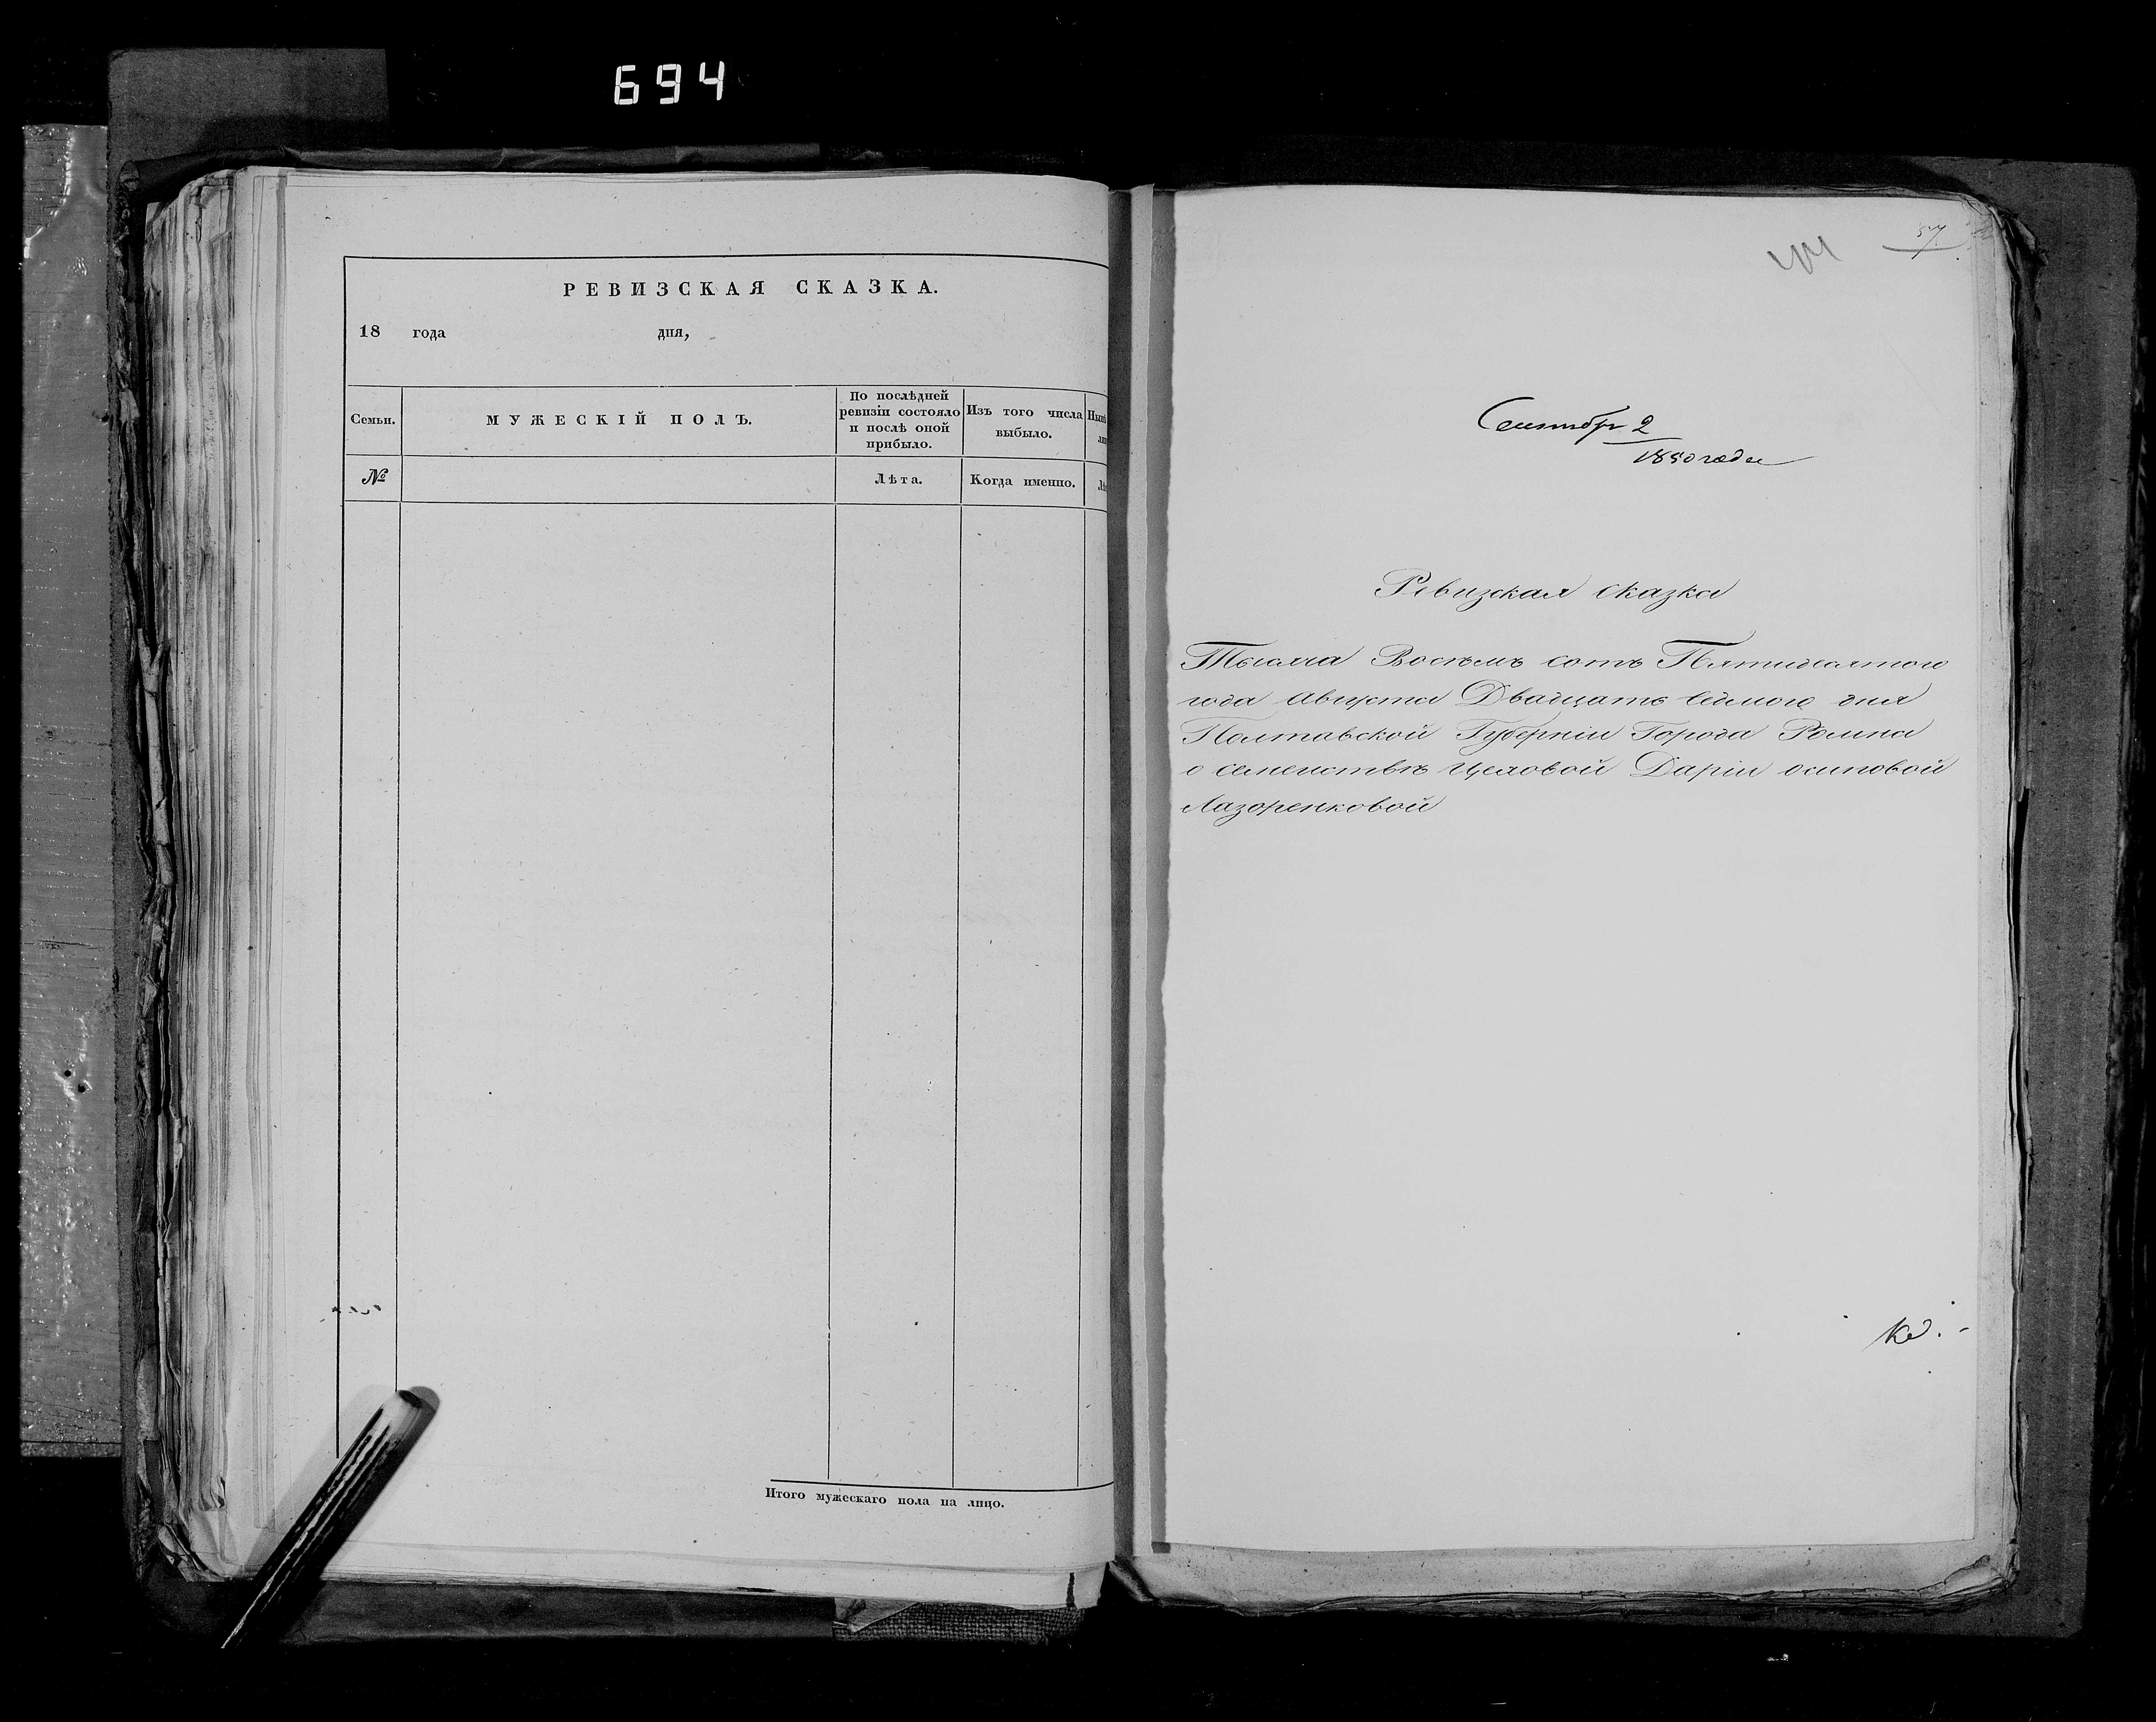 694
РЕВИЗСКАЯ СКАЗКА.
18 года дня,
Семьи.
МУЖЕСКІЙ ПОЛЪ.
По послѣдней
ревизіи состояло
и послѣ оной
прибыло.
Изъ того числа
выбыло.
№
Лѣта.
Когда именно.
Итого мужескаго пола на лицо.
Сентябр 2
1850 года
Ревизская сказка
Тысяча Восемъ сотъ Пятидесятого
года Августа Двадцать седмого дня
Полтавской Губерніи Города Ромна
о семействѣ Цеховой Даріи осиповой
Лазоренковой